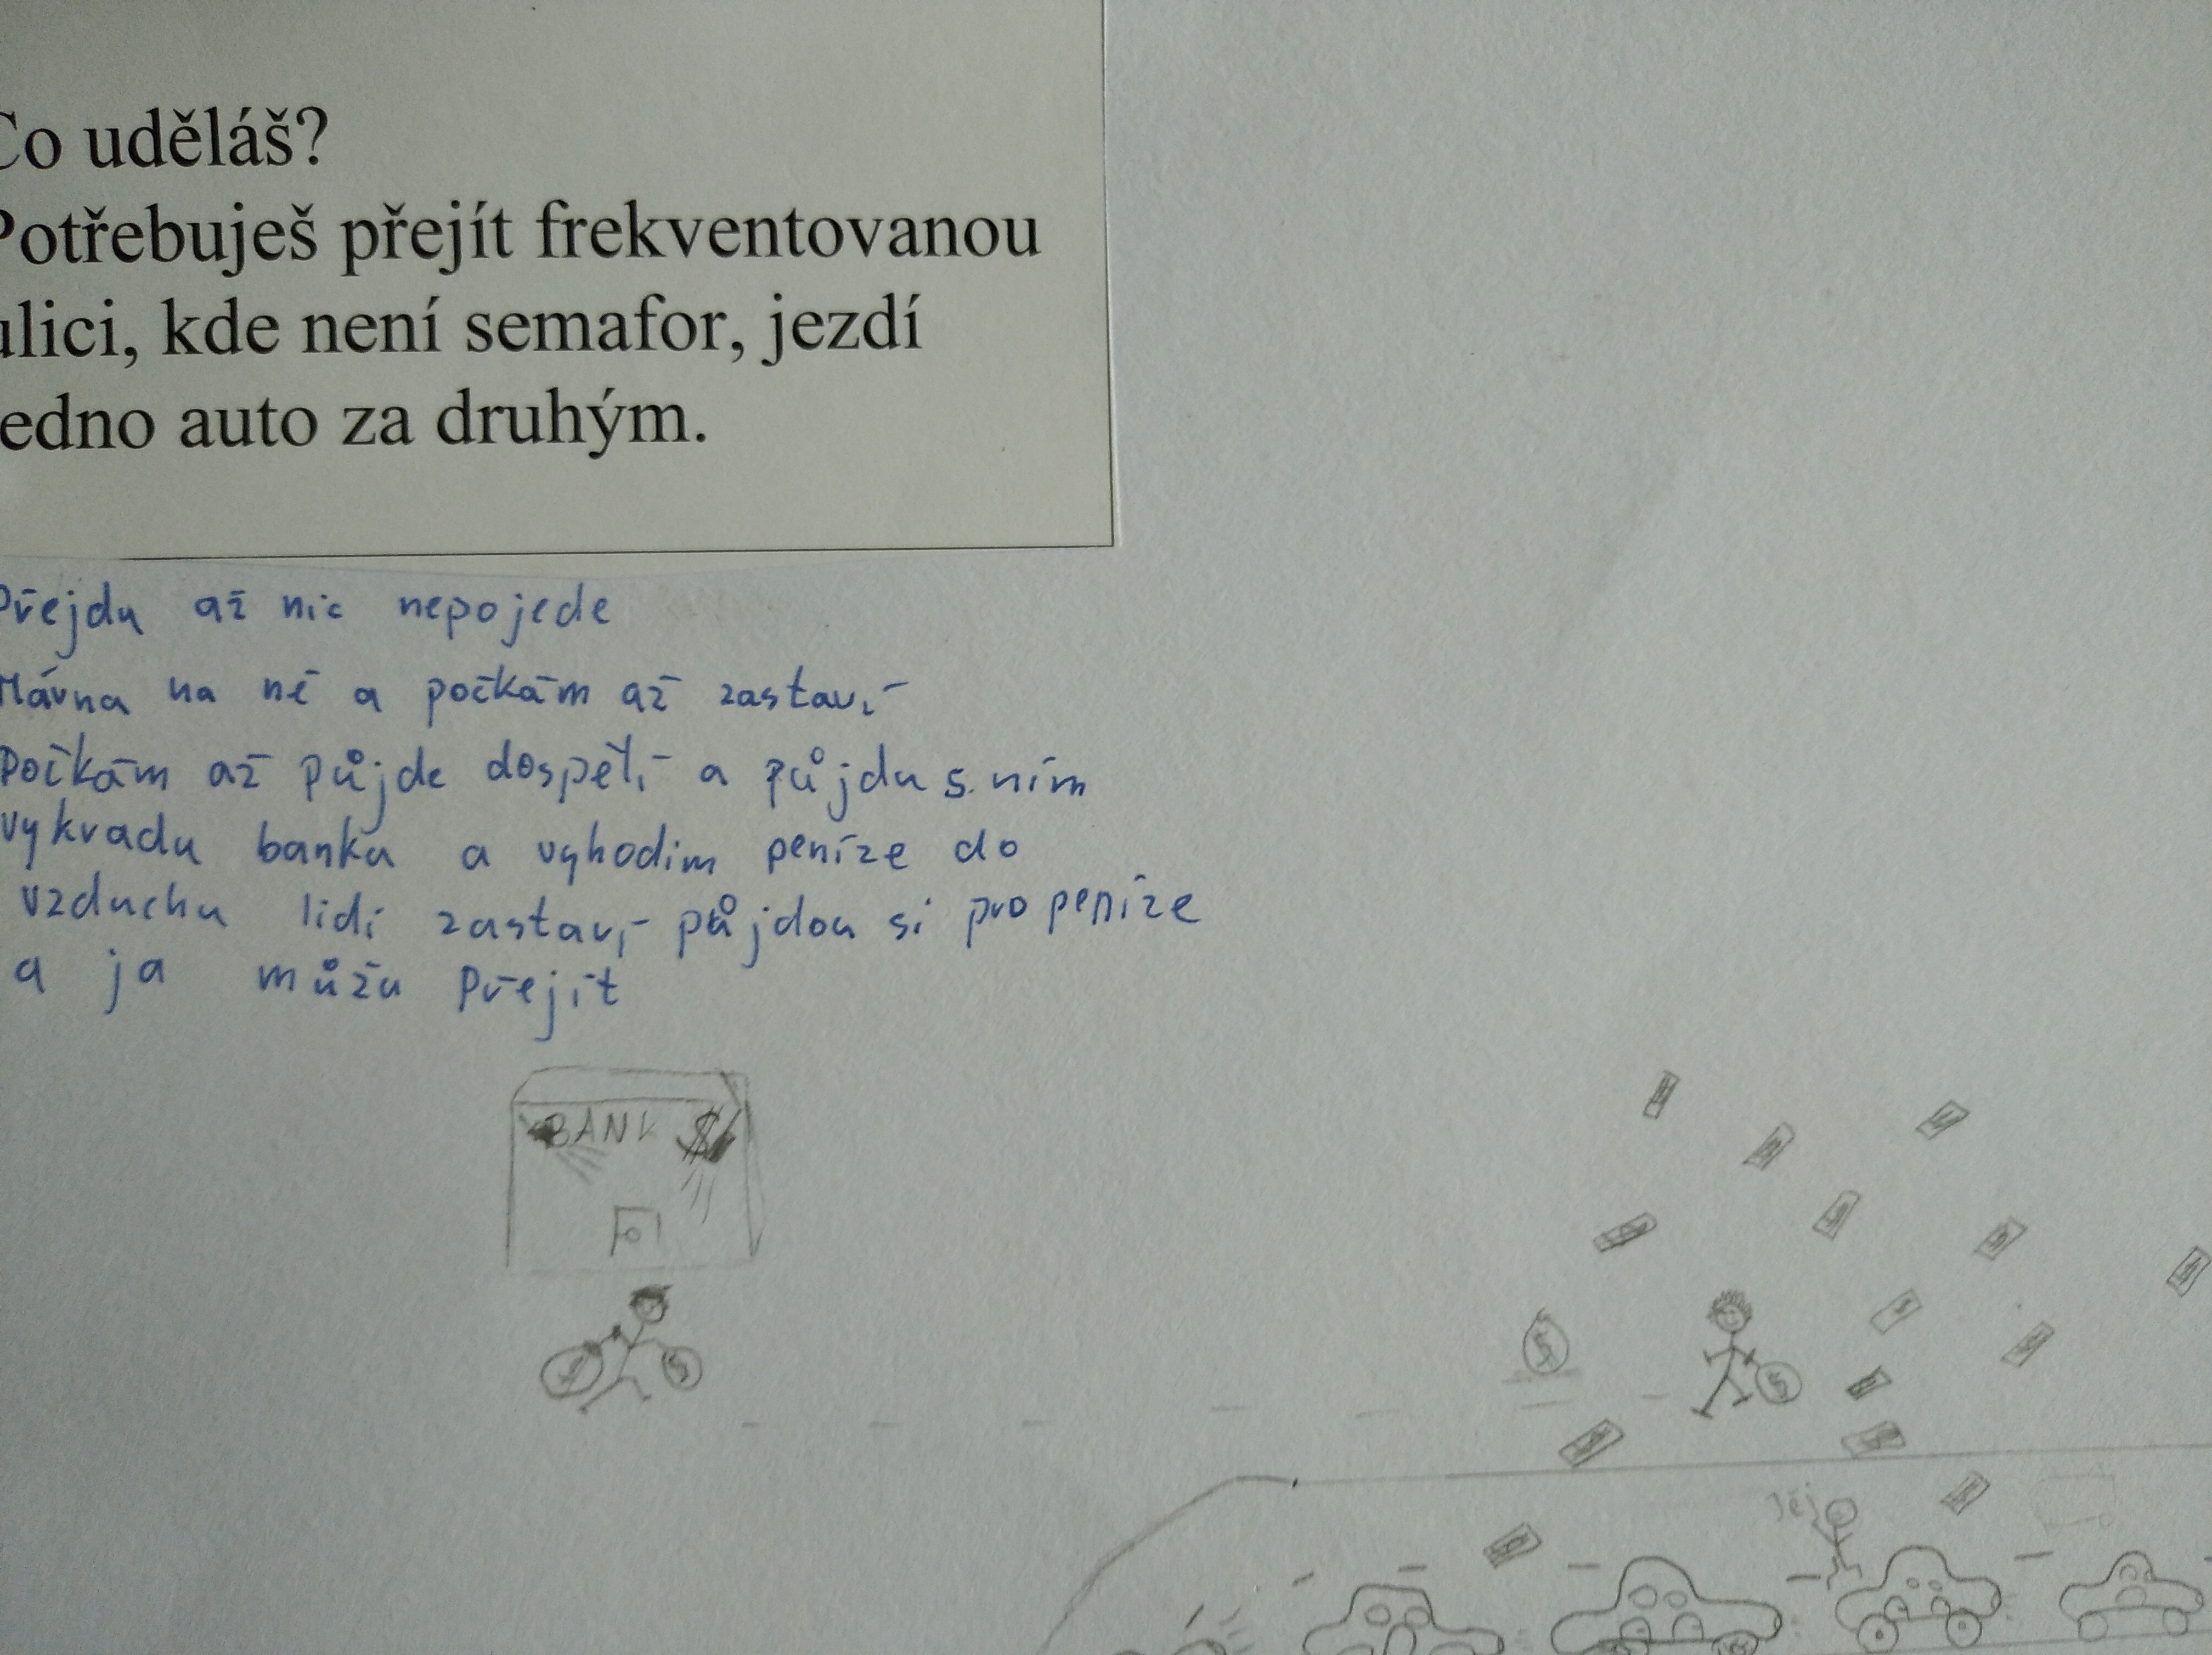 Co uděláš?
Potřebuješ přejít frekventovanou
ulici, kde není semafor, jezdí
jedno auto za druhým.
Přejdu až nic nepojede
Mávnu na ně a počkám až zastaví
Počkám až půjde dospělí a půjdu s ním
vykradu banku a vyhodim peníze do
vzduchu lidi zastaví půjdou si pro peníze
a ja můžu přejít
BANK $
$ $
$ $
Jéj